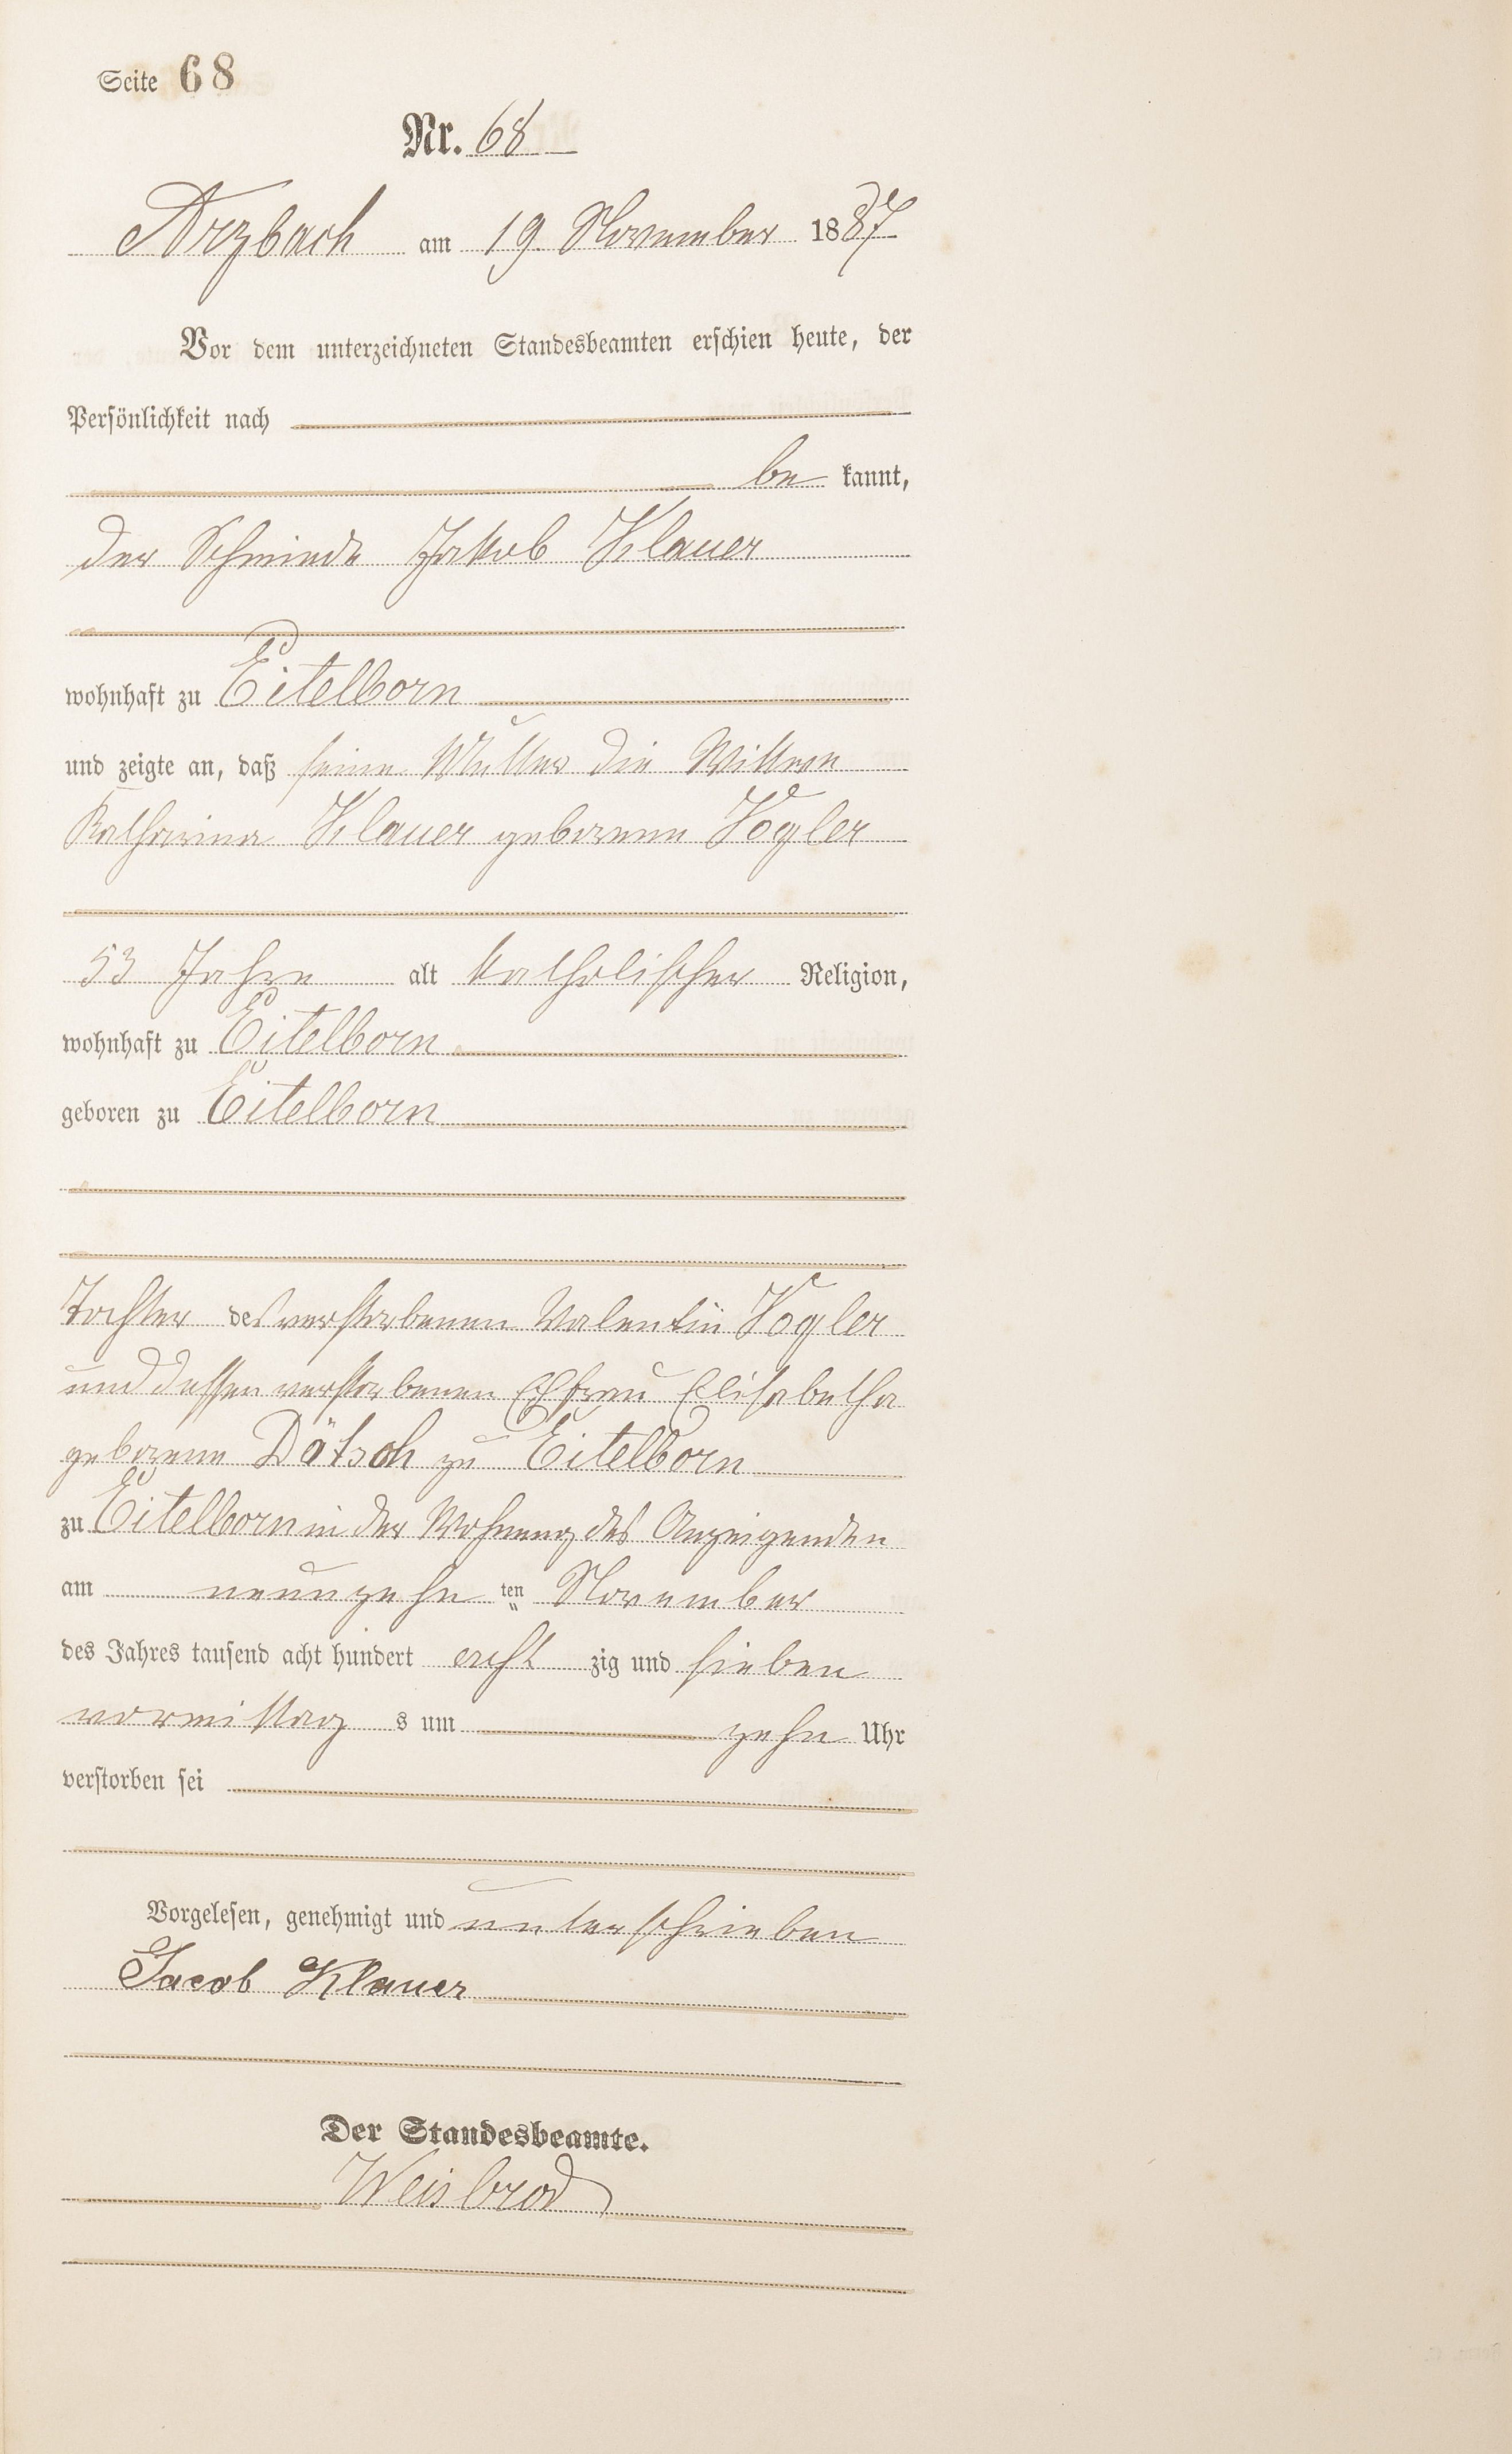 Seite 68
Nr. 68
Arzbach am 19. November 1887
Vor dem unterzeichneten Standesbeamten erschien heute, der
Persönlichkeit nach
be kannt,
der Schmiede Jakob Klauer
wohnhaft zu Eitelborn
und zeigte an, daß seine Mutter die Wittwe
Katharina Klauer geborene Vogler
53 Jahre alt katholischer Religion,
wohnhaft zu Eitelborn
geboren zu Eitelborn
Tochter des verstorbenen Valentin Vogler
und dessen verstorbenen Ehfrau Elisabetha
geborene Dötsch zu Eitelborn
zu Eitelborn in der Wohnung des Anzeigenden
am neunzehn ten November
des Jahres tausend acht hundert acht zig und sieben
vormittag s um zehn Uhr
verstorben sei
Vorgelesen, genehmigt und unterschrieben
Jacob Klauer
Der Standesbeamte.
Weisbrod